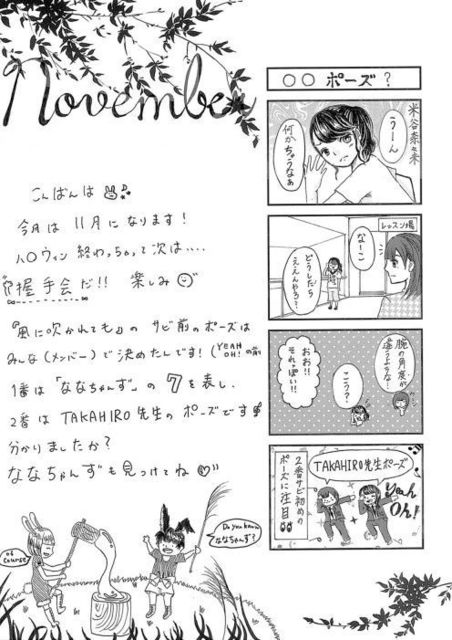 November
こんばんは
今月は11月になります！
ハロウィン終わっちゃって次は....
握手会だ!! 楽しみ
『風に吹かれても』のサビ前のポーズは
みんな(メンバー)で決めたんです！(YEAH OH!の前
1番は「ななちゃんず」の7を表し、
2番はTAKAHIRO先生のポーズです
分かりましたか？
ななちゃんずも見つけてね
of course
Do you know ななちゃんず？
○○ポーズ？
米谷奈々未
うーん
何かちゃうなぁ
レッスン場
なーこ
どうしたらええんやろ？
腕の角度が違うような！
こう？
おお!!それっぽい!!
TAKAHIRO先生ポーズ
Yeah Oh!
2番サビ初めのポーズに注目